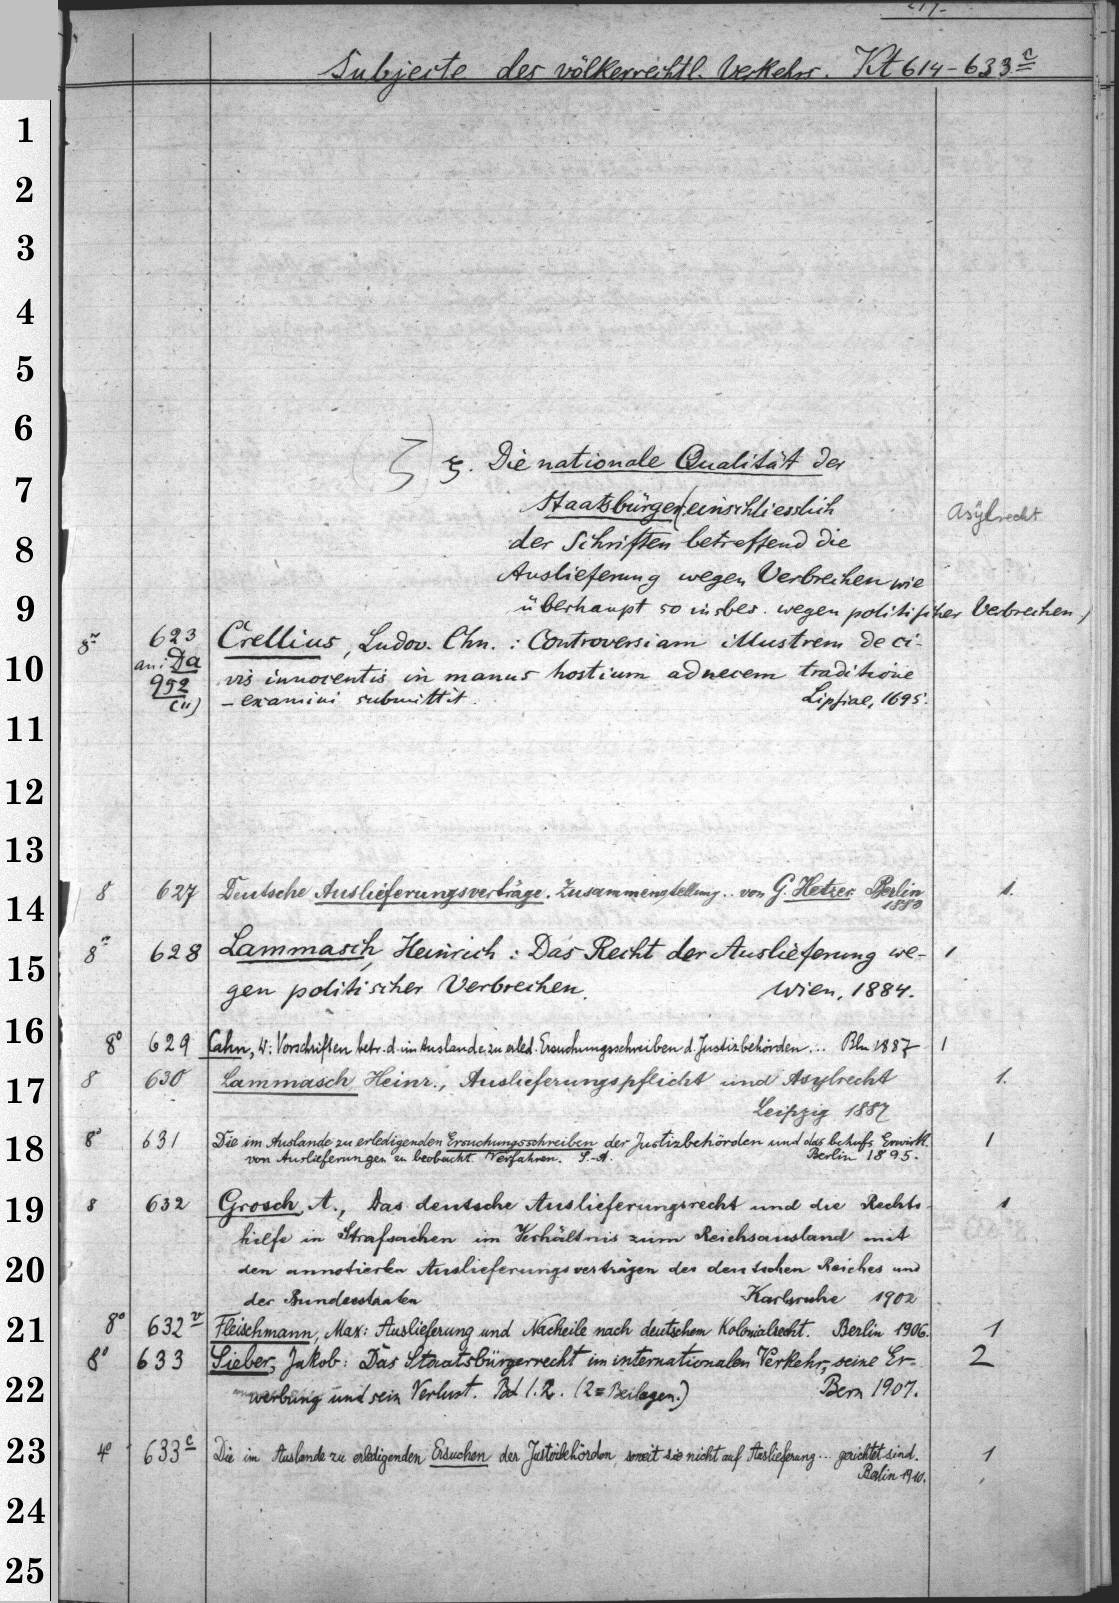 Subjecte des völkerrechtl. Verkehrs. Kt 614-633c
1
2
3
4
5
6
ζ ξ. Die nationale Qualität der
7
Staatsbürger (einschliesslich
Asylrecht
8
der Schriften betreffend die
Auslieferung wegen Verbrechen wie
9
überhaupt so insbes. wegen politischer Verbrechen)
8° 623 Crellius, Ludov. Chn. : Controversiam illustrem de ci-
an: Da
10
952 vis innocentis in manus hostium ad necem traditione
(11) - examini submittit. Lipsiae, 1695.
11
12
13
8 627 Deutsche Auslieferungsverträge. Zusammenstellung .. von G. Hetzer. Berlin 1.
14
1880
8° 628 Lammasch, Heinrich : Das Recht der Auslieferung we- 1
15
gen politischer Verbrechen. Wien, 1884.
16
8° 629 Cahn, W: Vorschriften betr. d. im Auslande zu erled. Ersuchungsschreiben d. Justizbehörden ... Bln 1887 1
17
8 630 Lammasch Heinr., Auslieferungspflicht und Asylrecht 1.
Leipzig 1887
18
8° 631 Die im Auslande zu erledigenden Ersuchungsschreiben der Justizbehörden und das behufs Erwirk. 1
von Auslieferungen zu beobacht. Verfahren. S.-A. Berlin 1895.
19
8 632 Grosch, A., Das deutsche Auslieferungsrecht und die Rechts- 1
hilfe in Strafsachen im Verhältnis zum Reichsausland mit
20
den annotierten Auslieferungsverträgen des deutschen Reiches und
der Bundesstaaten Karlsruhe 1902
21
8° 632v Fleischmann, Max: Auslieferung und Nacheile nach deutschem Kolonialrecht. Berlin 1906. 1
8° 633 Sieber, Jakob: Das Staatsbürgerrecht im internationalen Verkehr, seine Er- 2
22
werbung und sein Verlust. Bd 1.2. (2 = Beilagen.) Bern 1907.
23
4° 633c Die im Auslande zu erledigenden Ersuchen der Justizbehörden soweit sie nicht auf Auslieferung ... gerichtet sind. 1
Berlin 1910.
24
25